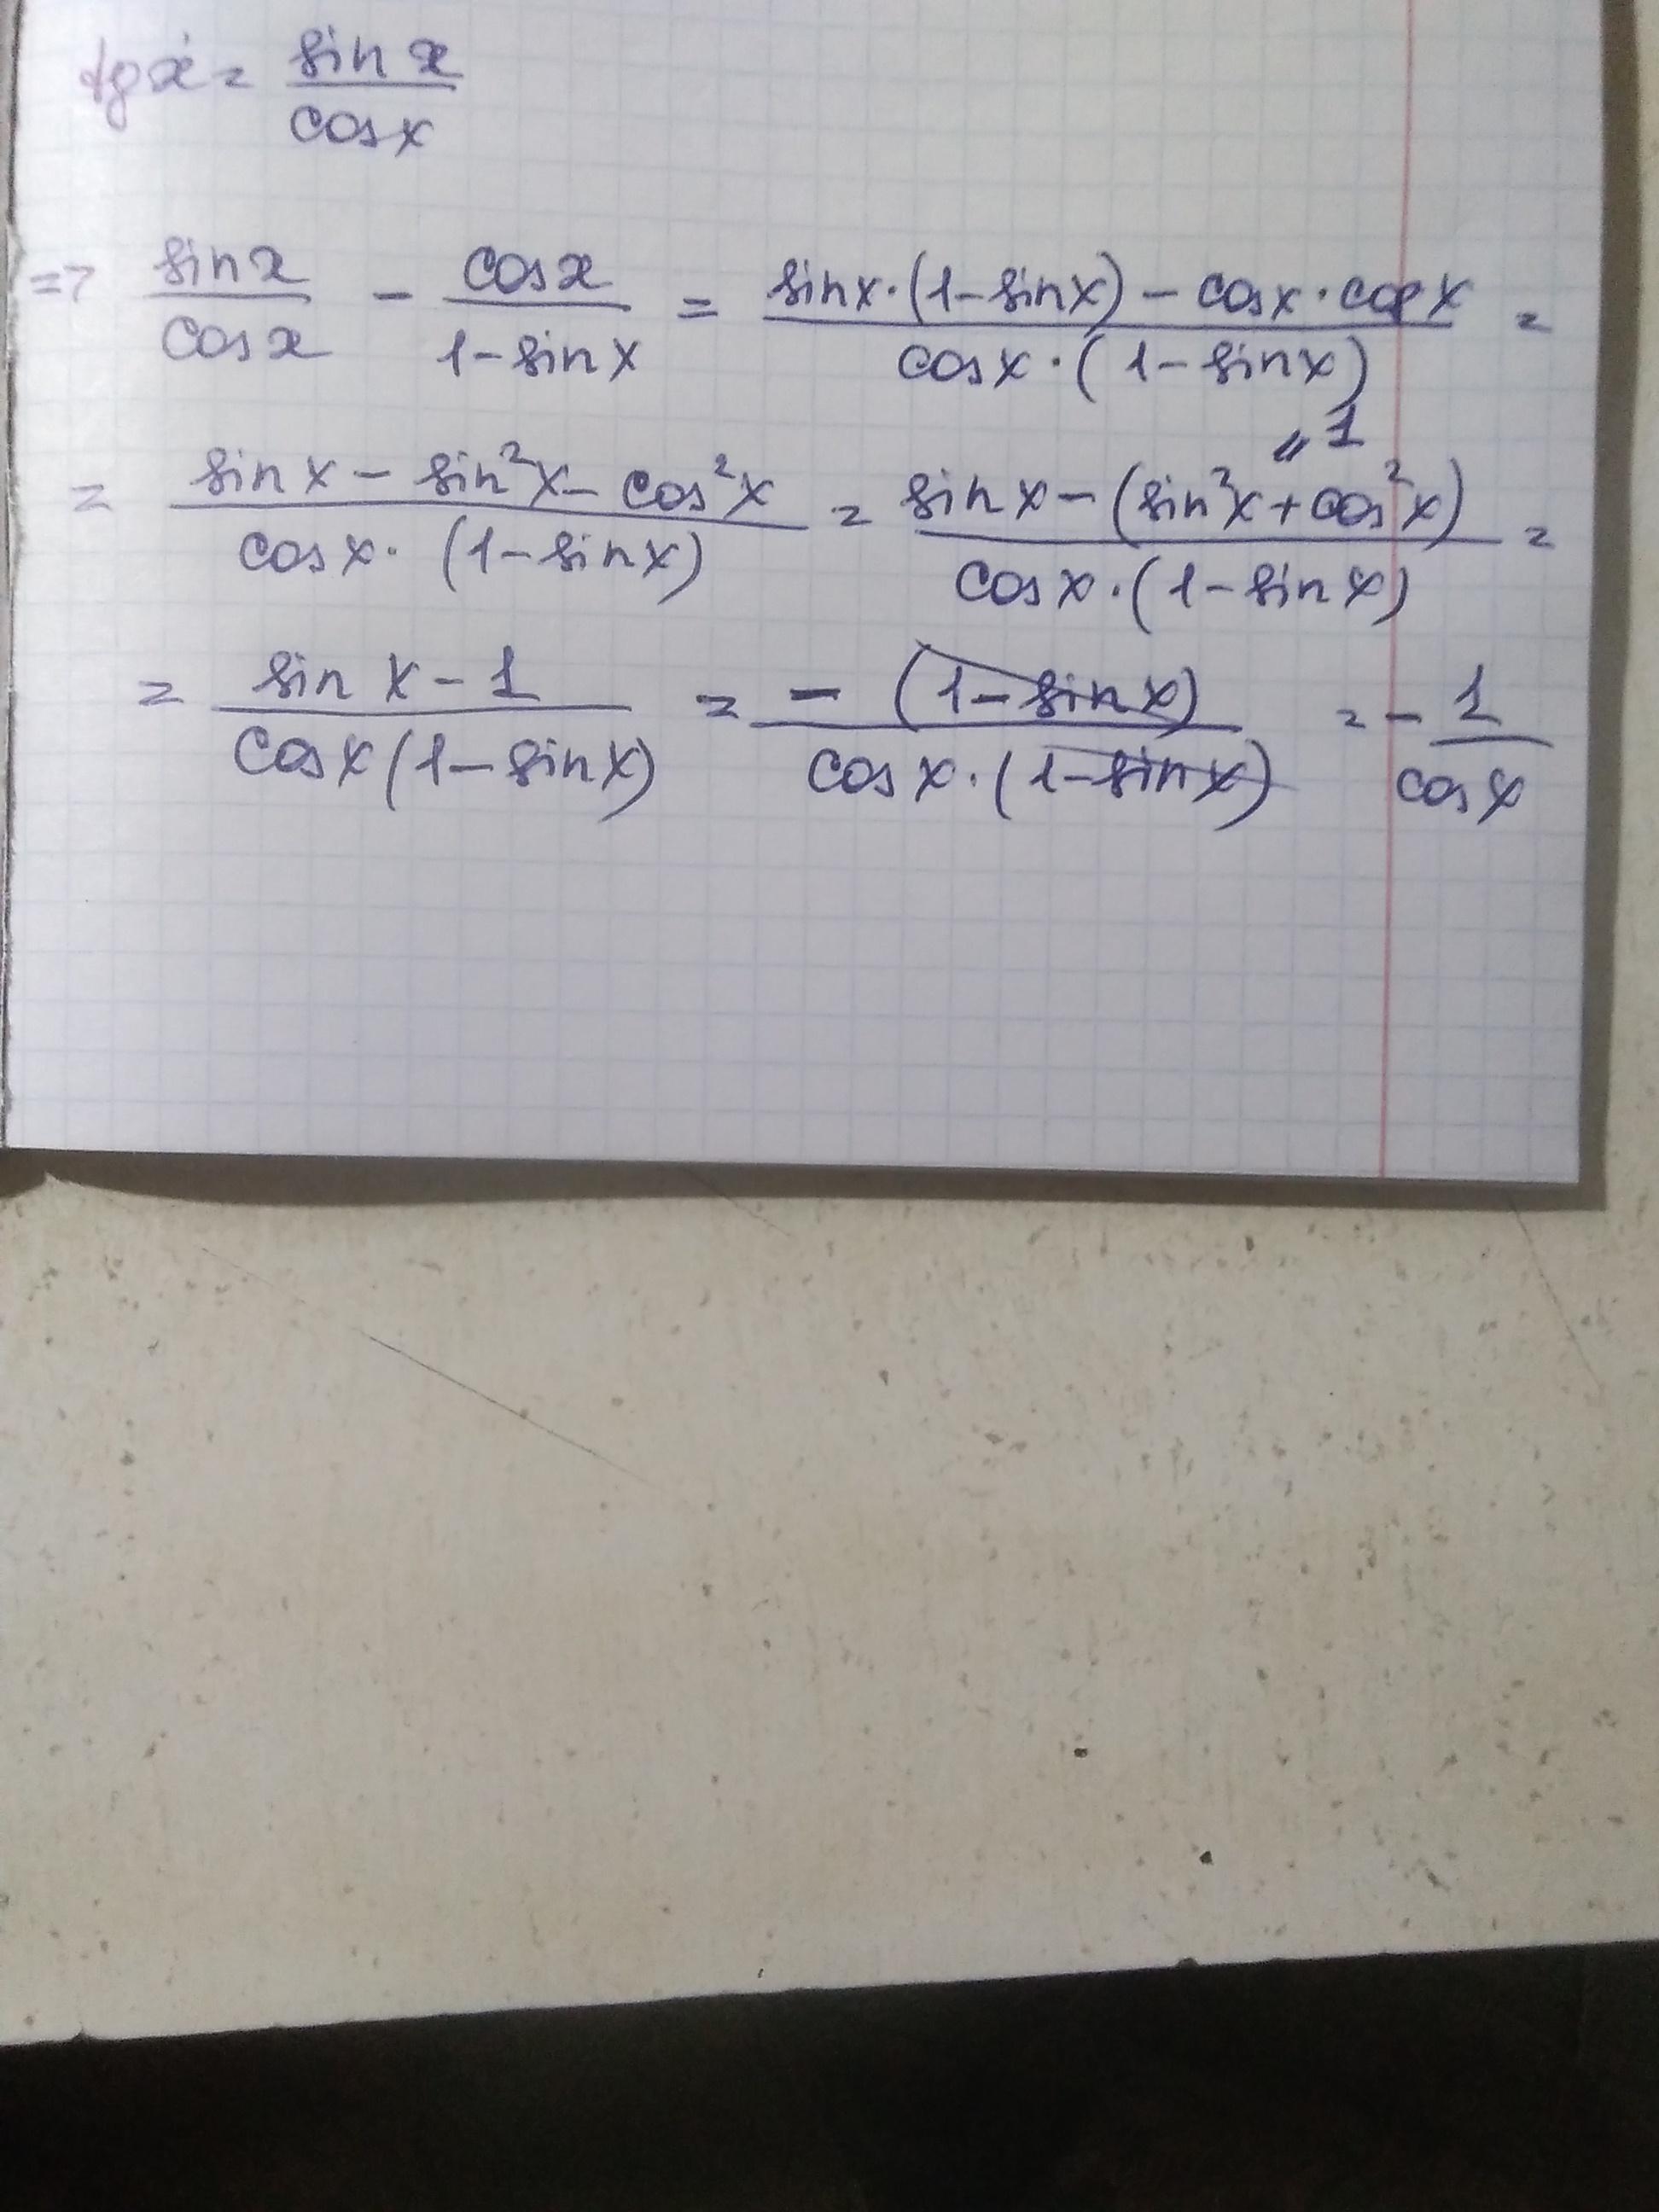 tg x = sin x / cos x
=> sin x / cos x - cos x / 1-sin x = sin x·(1-sin x) - cos x·cos x / cos x·(1-sin x) =
"1
= sin x - sin²x - cos²x / cos x·(1-sin x) = sin x - (sin²x + cos²x) / cos x·(1-sin x) =
= sin x - 1 / cos x(1-sin x) = -(1-sin x) / cos x·(1-sin x) = - 1 / cos x